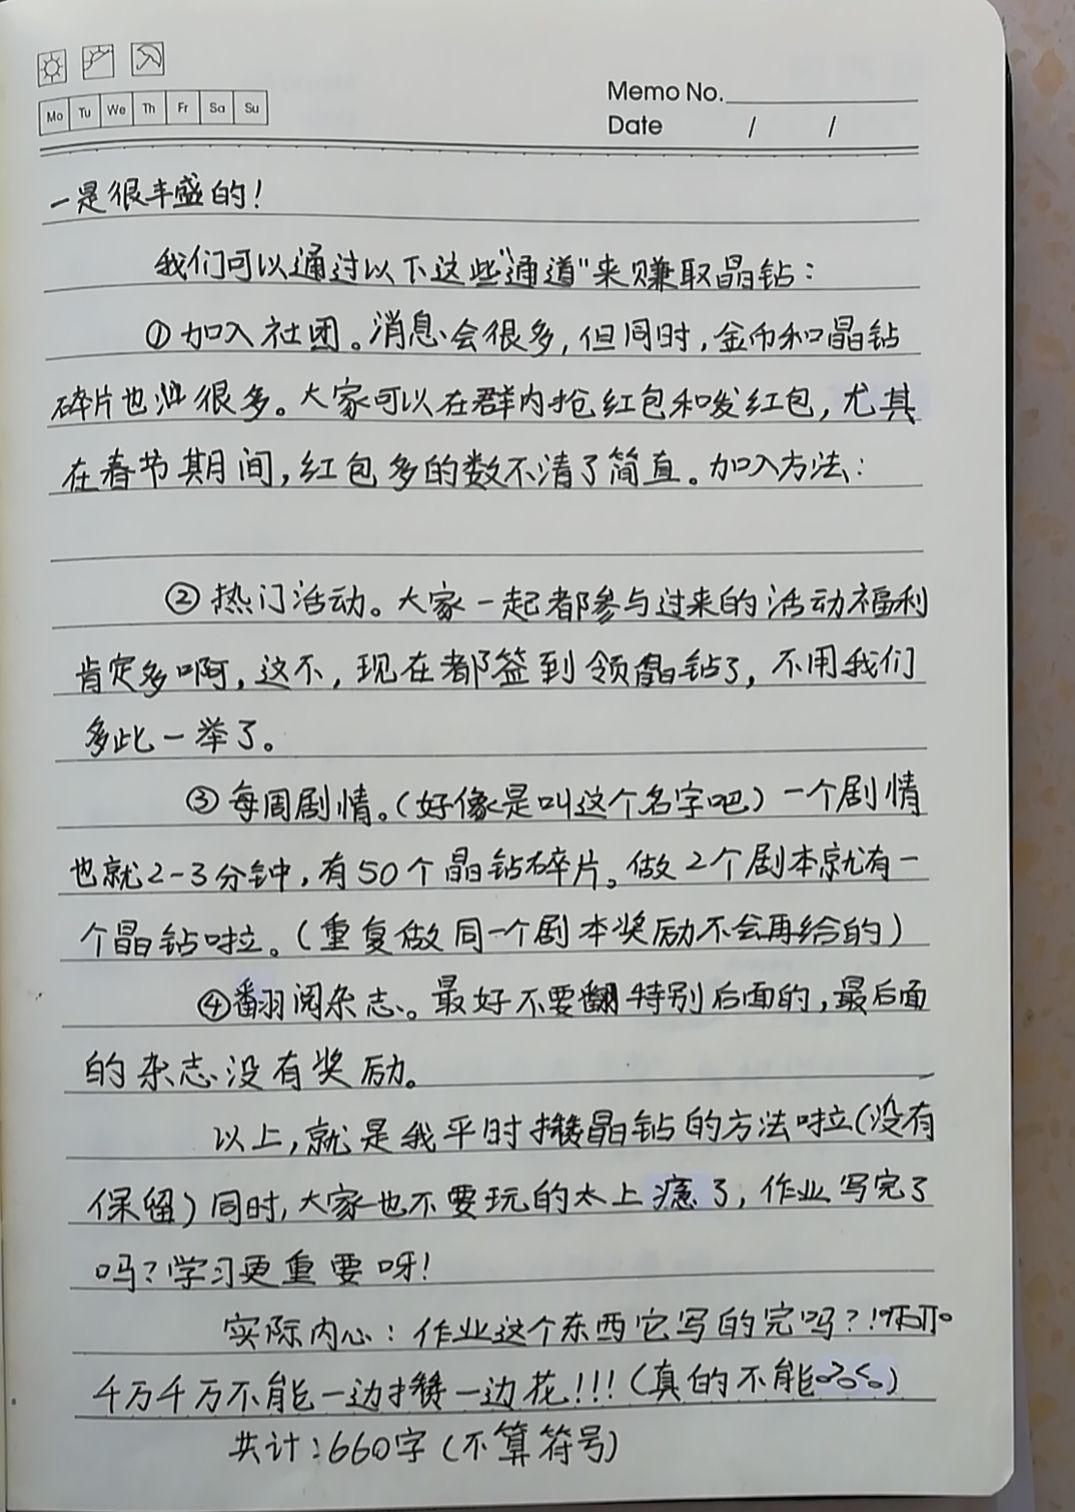 Mo Tu We Th Fr Sa Su
Memo No.
Date / /
一是很丰盛的!
我们可以通过以下这些"通道"来赚取晶钻:
①加入社团。消息会很多,但同时,金币和晶钻
碎片也很多。大家可以在群内抢红包和发红包,尤其
在春节期间,红包多的数不清了简直。加入方法:
②热门活动。大家一起都参与过来的活动福利
肯定多啊,这不,现在都签到领晶钻了,不用我们
多此一举了。
③每周剧情。(好像是叫这个名字吧)一个剧情
也就2-3分钟,有50个晶钻碎片。做2个剧本就有一
个晶钻啦。(重复做同一个剧本奖励不会再给的)
④翻阅杂志。最好不要翻特别后面的,最后面
的杂志没有奖励。
以上,就是我平时攒晶钻的方法啦(没有
保留)同时,大家也不要玩的太上瘾了,作业写完了
吗?学习更重要呀!
实际内心:作业这个东西它写的完吗?!
千万千万不能一边攒一边花!!!(真的不能)
共计:660字(不算符号)